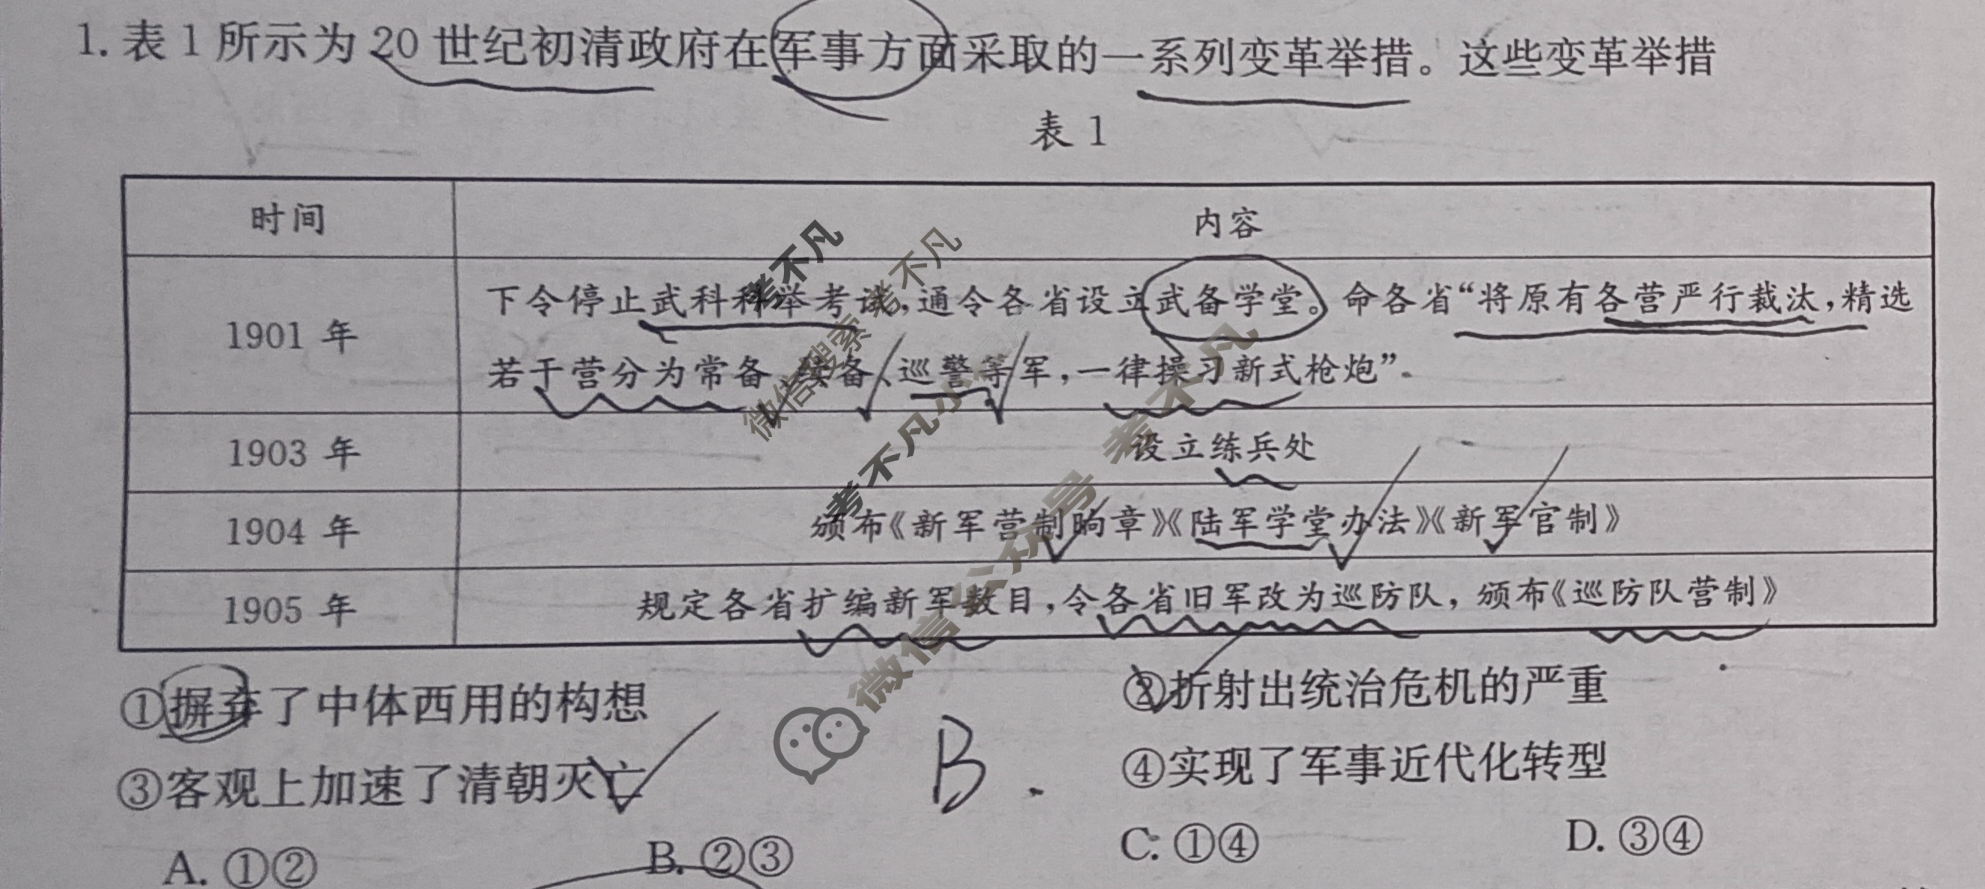 1. 表 1 所示为 20 世纪初清政府在军事方面采取的一系列变革举措。这些变革举措
表 1
时间 内容
1901 年 下令停止武科科举考试,通令各省设立武备学堂。命各省“将原有各营严行裁汰,精选
若干营分为常备、续备、巡警等军,一律操习新式枪炮”。
1903 年 设立练兵处
1904 年 颁布《新军营制饷章》《陆军学堂办法》《新军官制》
1905 年 规定各省扩编新军数目,令各省旧军改为巡防队,颁布《巡防队营制》
①摒弃了中体西用的构想 ②折射出统治危机的严重
③客观上加速了清朝灭亡 ④实现了军事近代化转型
B.
A. ①② B. ②③ C. ①④ D. ③④
考不凡
考不凡
微信搜索
考不凡小
微信公众号 考不凡